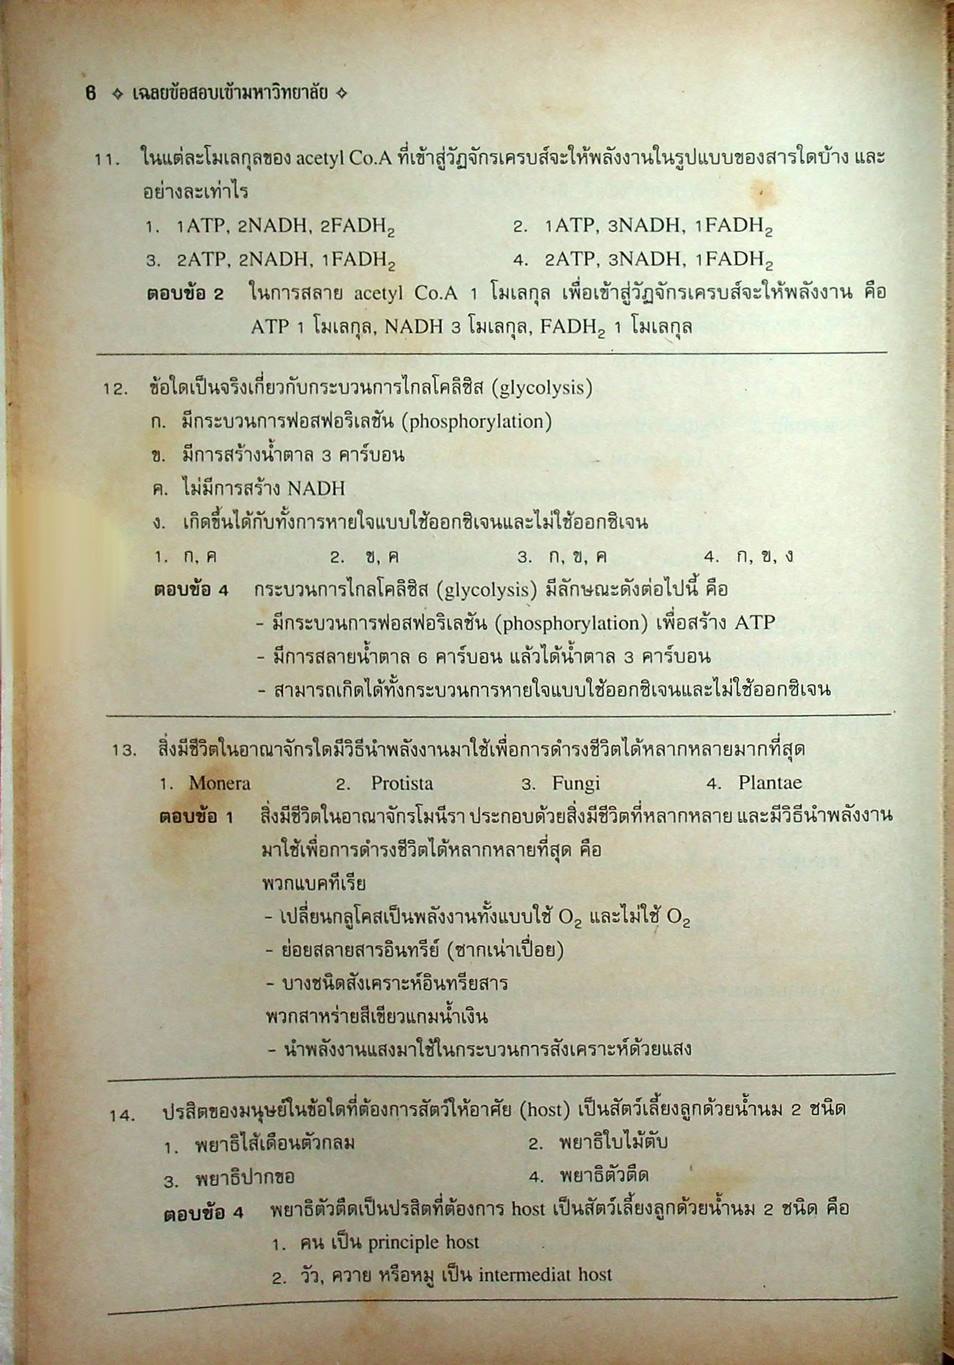 6 ✧ เฉลยข้อสอบเข้ามหาวิทยาลัย ✧
11. ในแต่ละโมเลกุลของ acetyl Co.A ที่เข้าสู่วัฏจักรเครบส์จะให้พลังงานในรูปแบบของสารใดบ้าง และ
อย่างละเท่าไร
1. 1ATP, 2NADH, 2FADH₂ 2. 1ATP, 3NADH, 1FADH₂
3. 2ATP, 2NADH, 1FADH₂ 4. 2ATP, 3NADH, 1FADH₂
ตอบข้อ 2 ในการสลาย acetyl Co.A 1 โมเลกุล เพื่อเข้าสู่วัฏจักรเครบส์จะให้พลังงาน คือ
ATP 1 โมเลกุล, NADH 3 โมเลกุล, FADH₂ 1 โมเลกุล
12. ข้อใดเป็นจริงเกี่ยวกับกระบวนการไกลโคลิซิส (glycolysis)
ก. มีกระบวนการฟอสฟอริเลชัน (phosphorylation)
ข. มีการสร้างน้ำตาล 3 คาร์บอน
ค. ไม่มีการสร้าง NADH
ง. เกิดขึ้นได้กับทั้งการหายใจแบบใช้ออกซิเจนและไม่ใช้ออกซิเจน
1. ก, ค 2. ข, ค 3. ก, ข, ค 4. ก, ข, ง
ตอบข้อ 4 กระบวนการไกลโคลิซิส (glycolysis) มีลักษณะดังต่อไปนี้ คือ
- มีกระบวนการฟอสฟอริเลชัน (phosphorylation) เพื่อสร้าง ATP
- มีการสลายน้ำตาล 6 คาร์บอน แล้วได้น้ำตาล 3 คาร์บอน
- สามารถเกิดได้ทั้งกระบวนการหายใจแบบใช้ออกซิเจนและไม่ใช้ออกซิเจน
13. สิ่งมีชีวิตในอาณาจักรใดมีวิธีนำพลังงานมาใช้เพื่อการดำรงชีวิตได้หลากหลายมากที่สุด
1. Monera 2. Protista 3. Fungi 4. Plantae
ตอบข้อ 1 สิ่งมีชีวิตในอาณาจักรโมนีรา ประกอบด้วยสิ่งมีชีวิตที่หลากหลาย และมีวิธีนำพลังงาน
มาใช้เพื่อการดำรงชีวิตได้หลากหลายที่สุด คือ
พวกแบคทีเรีย
- เปลี่ยนกลูโคสเป็นพลังงานทั้งแบบใช้ O₂ และไม่ใช้ O₂
- ย่อยสลายสารอินทรีย์ (ซากเน่าเปื่อย)
- บางชนิดสังเคราะห์อินทรียสาร
พวกสาหร่ายสีเขียวแกมน้ำเงิน
- นำพลังงานแสงมาใช้ในกระบวนการสังเคราะห์ด้วยแสง
14. ปรสิตของมนุษย์ในข้อใดที่ต้องการสัตว์ให้อาศัย (host) เป็นสัตว์เลี้ยงลูกด้วยน้ำนม 2 ชนิด
1. พยาธิไส้เดือนตัวกลม 2. พยาธิใบไม้ตับ
3. พยาธิปากขอ 4. พยาธิตัวตืด
ตอบข้อ 4 พยาธิตัวตืดเป็นปรสิตที่ต้องการ host เป็นสัตว์เลี้ยงลูกด้วยน้ำนม 2 ชนิด คือ
1. คน เป็น principle host
2. วัว, ควาย หรือหมู เป็น intermediat host